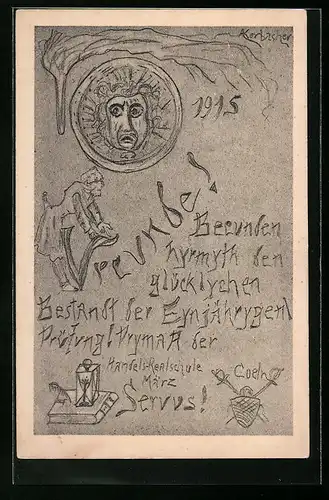 AKorbacher
1915
Freunde!
Becunden
hyrmyth den
glücklychen
Bestandt der Eynjährygen
Prüfung! Pryma A der
Handels-Realschule
März
Coeln
Servus!